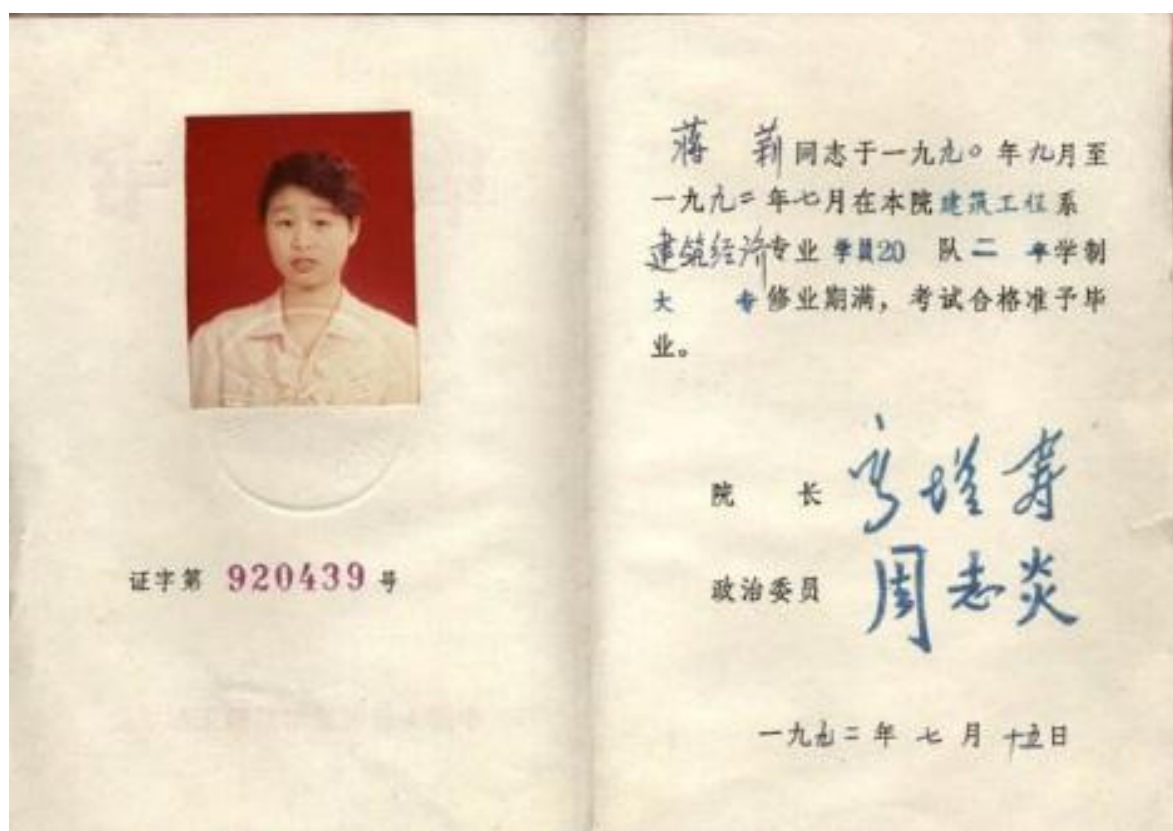 证字第 920439 号
蒋 莉同志于一九九〇年九月至
一九九二年七月在本院建筑工程系
建筑经济专业学员20 队二 年学制
大 专修业期满，考试合格准予毕
业。
院 长 高增寿
政治委员 周志炎
一九九二年七月十五日